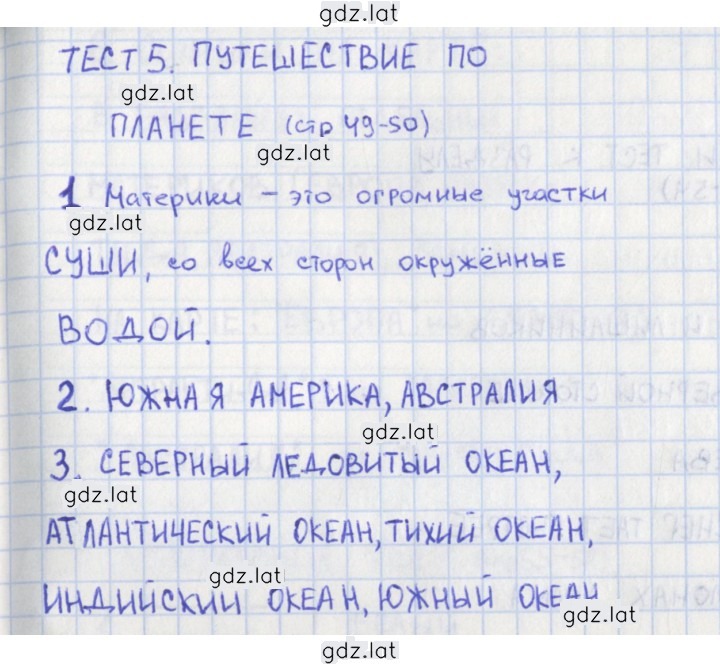 gdz.lat
ТЕСТ 5. ПУТЕШЕСТВИЕ ПО
gdz.lat
ПЛАНЕТЕ (стр 49-50)
gdz.lat
1 Материки – это огромные участки
gdz.lat
СУШИ, со всех сторон окружённые
ВОДОЙ.
2. ЮЖНАЯ АМЕРИКА, АВСТРАЛИЯ
gdz.lat
3. СЕВЕРНЫЙ ЛЕДОВИТЫЙ ОКЕАН,
gdz.lat
АТЛАНТИЧЕСКИЙ ОКЕАН, ТИХИЙ ОКЕАН,
gdz.lat
ИНДИЙСКИЙ ОКЕАН, ЮЖНЫЙ ОКЕАН
gdz.lat
gdz.lat